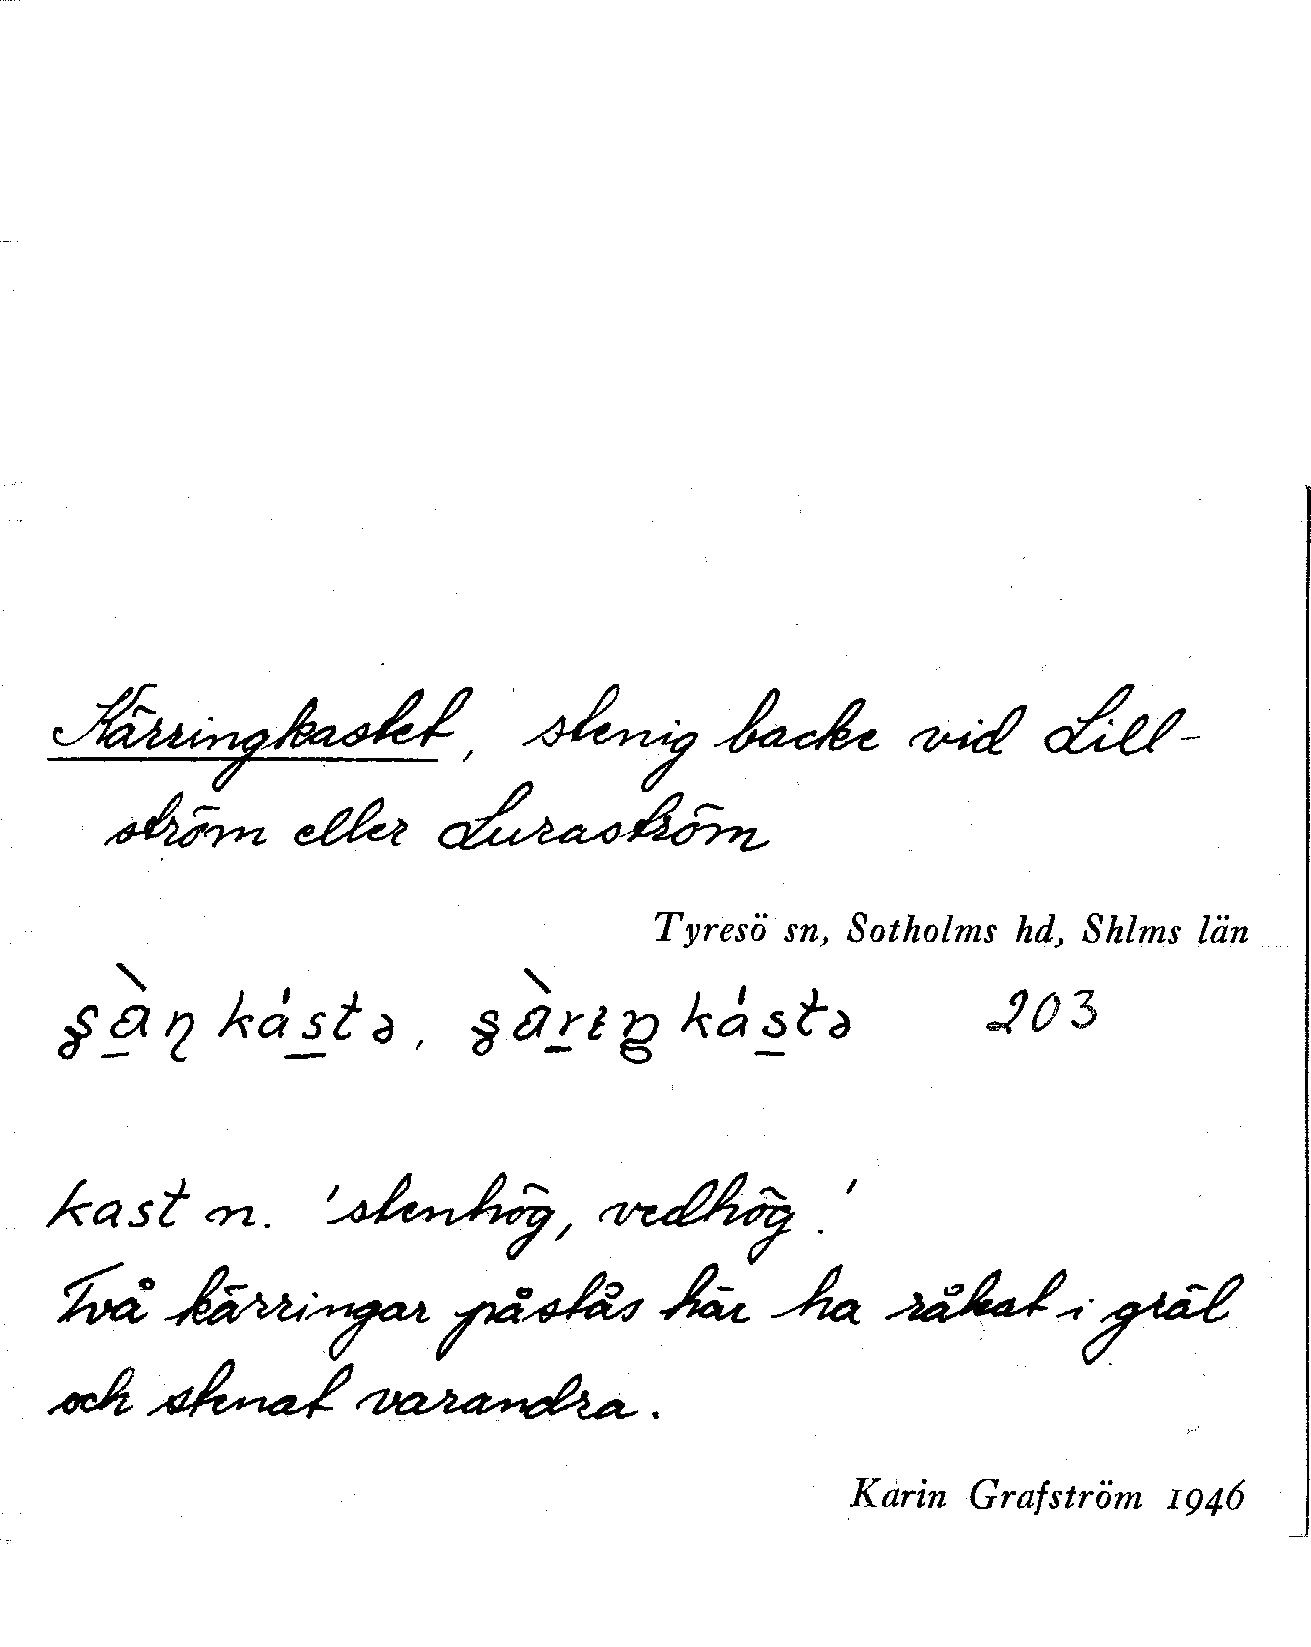 Kärringkastet, stenig backe vid Lill-
ström eller Luraström
Tyresö sn, Sotholms hd, Shlms län
203
kast n. 'stenhög, vedhög.'
Två kärringar påstås här ha råkat i gräl
och stenat varandra.
Karin Grafström 1946